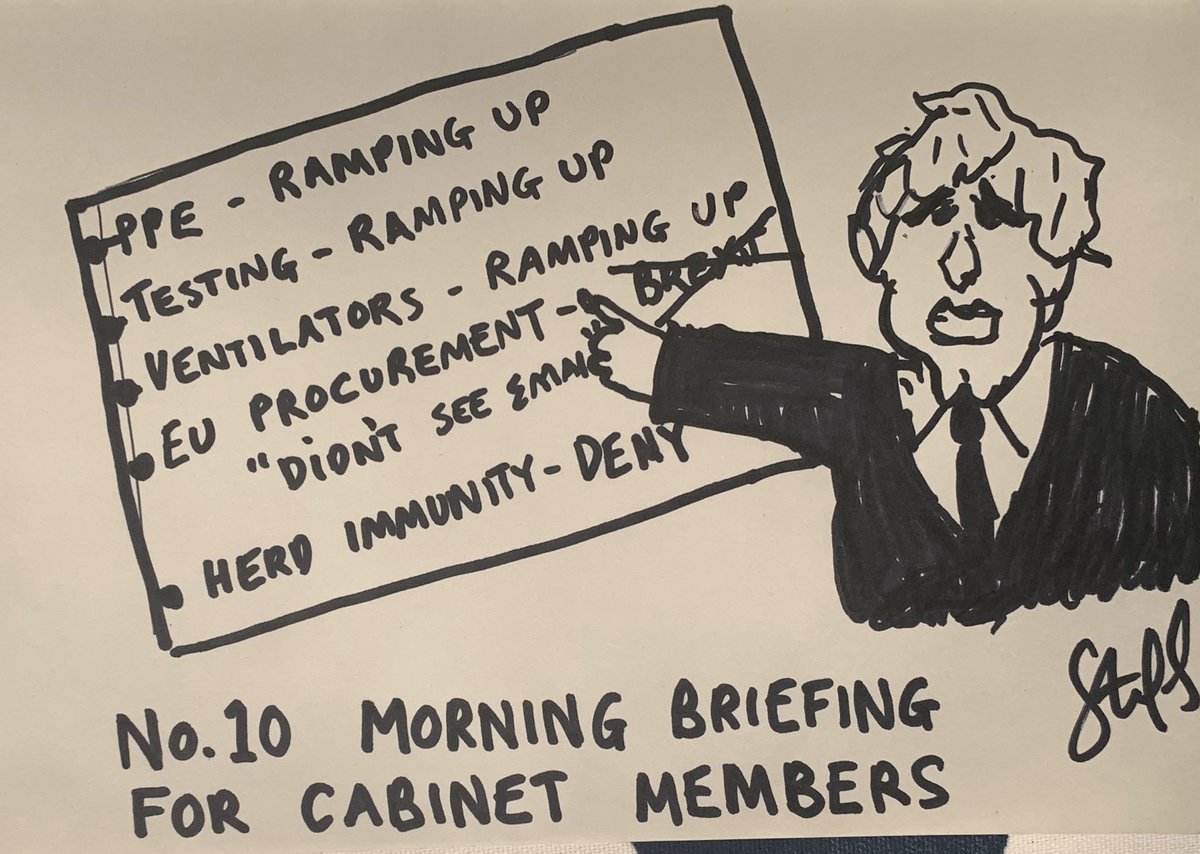 PPE - RAMPING UP
TESTING - RAMPING UP
VENTILATORS - RAMPING UP
EU PROCUREMENT - BREXIT
"DION'T SEE EMAI
HERD IMMUNITY - DENY
No. 10 MORNING BRIEFING
FOR CABINET MEMBERS